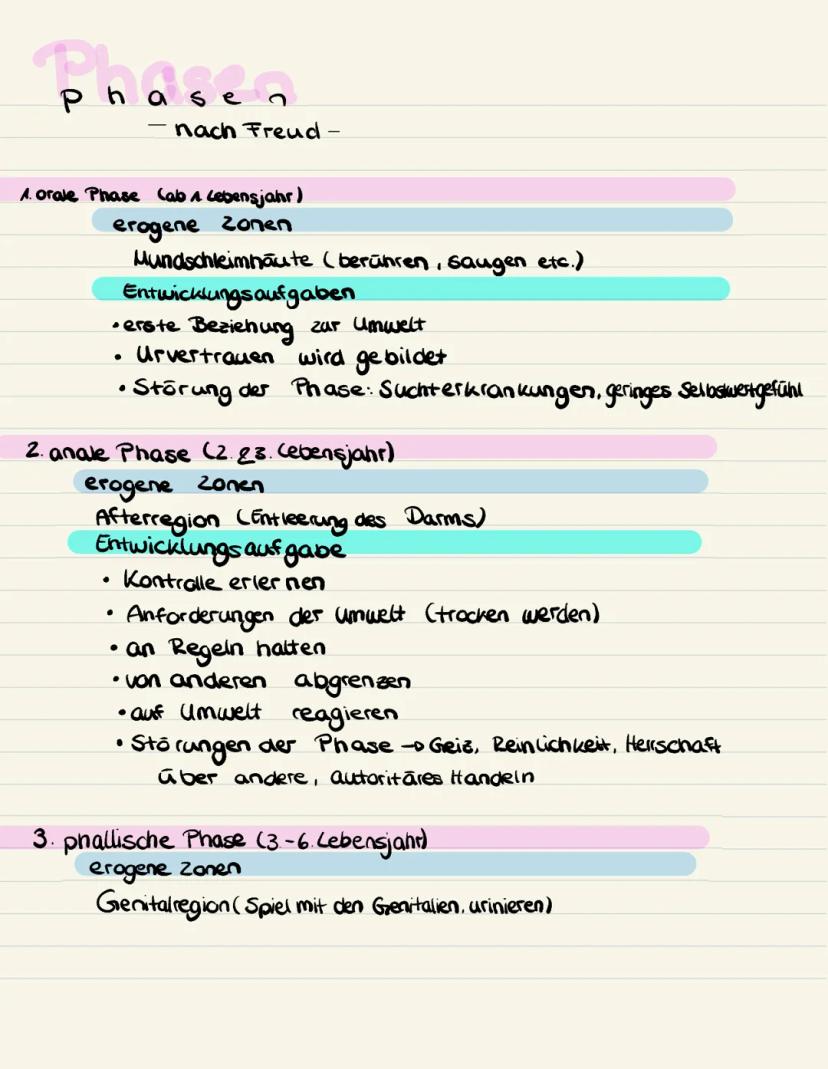 Phasen
Phasen
– nach Freud –
1. orale Phase (ab 1 Lebensjahr)
erogene Zonen
Mundschleimhäute (berühren, saugen etc.)
Entwicklungsaufgaben
• erste Beziehung zur Umwelt
• Urvertrauen wird gebildet
• Störung der Phase: Suchterkrankungen, geringes Selbswertgefühl
2. anale Phase (2. & 3. Lebensjahr)
erogene Zonen
Afterregion (Entleerung des Darms)
Entwicklungsaufgabe
• Kontrolle erlernen
• Anforderungen der Umwelt (trocken werden)
• an Regeln halten
• von anderen abgrenzen
• auf Umwelt reagieren
• Störungen der Phase → Geiz, Reinlichkeit, Herrschaft
über andere, autoritäres Handeln
3. phallische Phase (3-6. Lebensjahr)
erogene Zonen
Genitalregion (Spiel mit den Genitalien, urinieren)